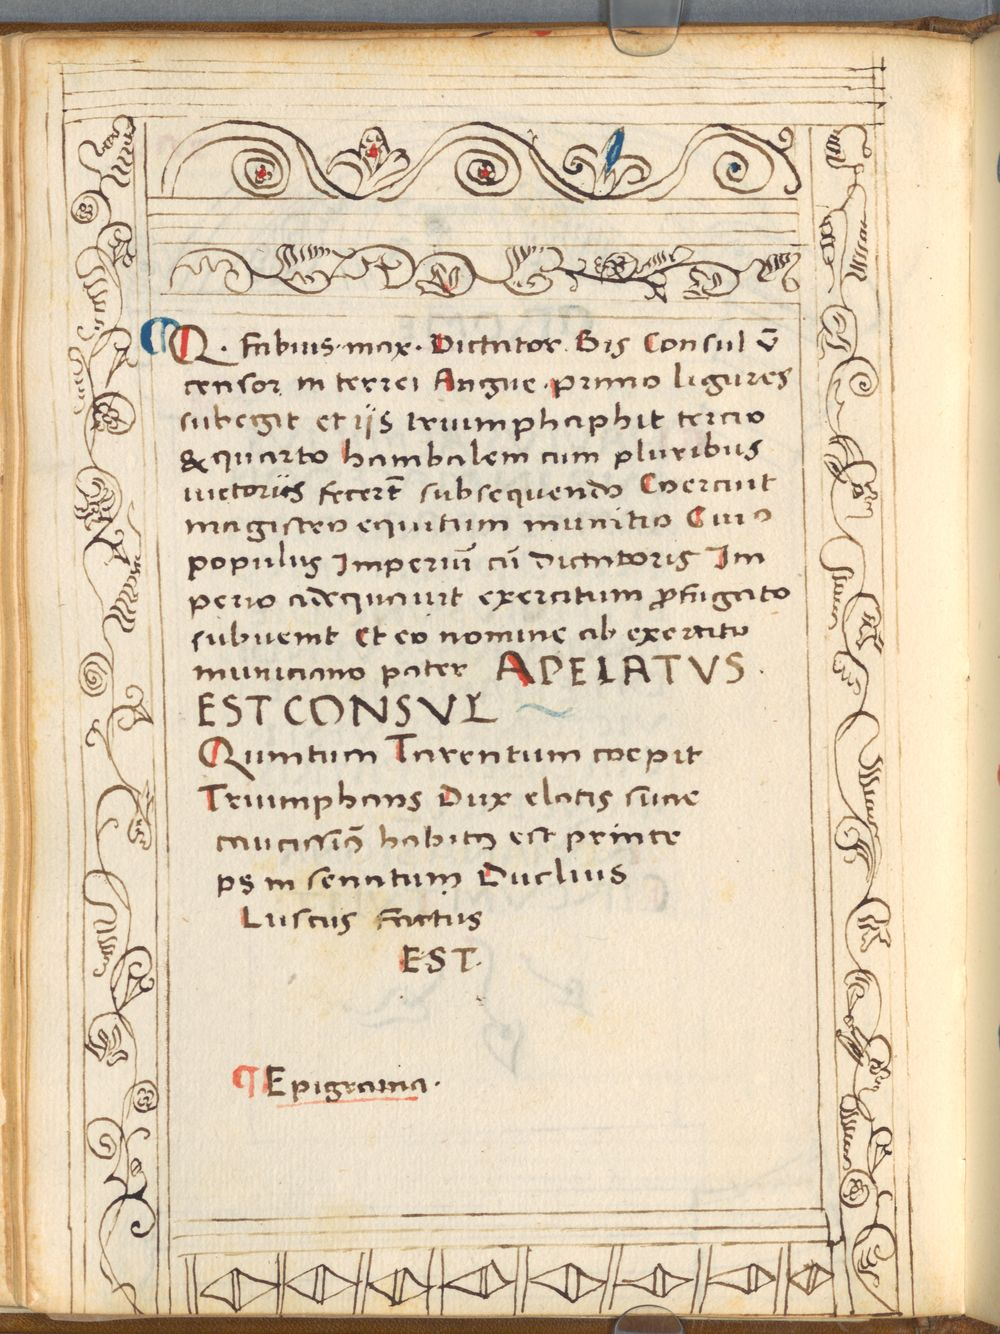 ¶ Q. fabius max. Dictator. Bis Consul v̄
censor interrei Angue primo ligures
subegit et iis triumphaphit tercio
& quarto hambalem cum pluribus
uictoriis fecer̄t subsequendo Coercuit
magistro equitum munitio Cuio
populus Imperiū cū dictatoris Im
perio adequauit exercitum ꝓfugato
subuenit Et eo nomine ab exercitu
municiano pater APELATVS.
EST CONSVL
Quintum Tarentum coepit
Triumphans Dux elatis suae
caucissiō habitꝫ est prince
ps in senatum Duclius
Luscus factus
EST.
¶ Epigrama.